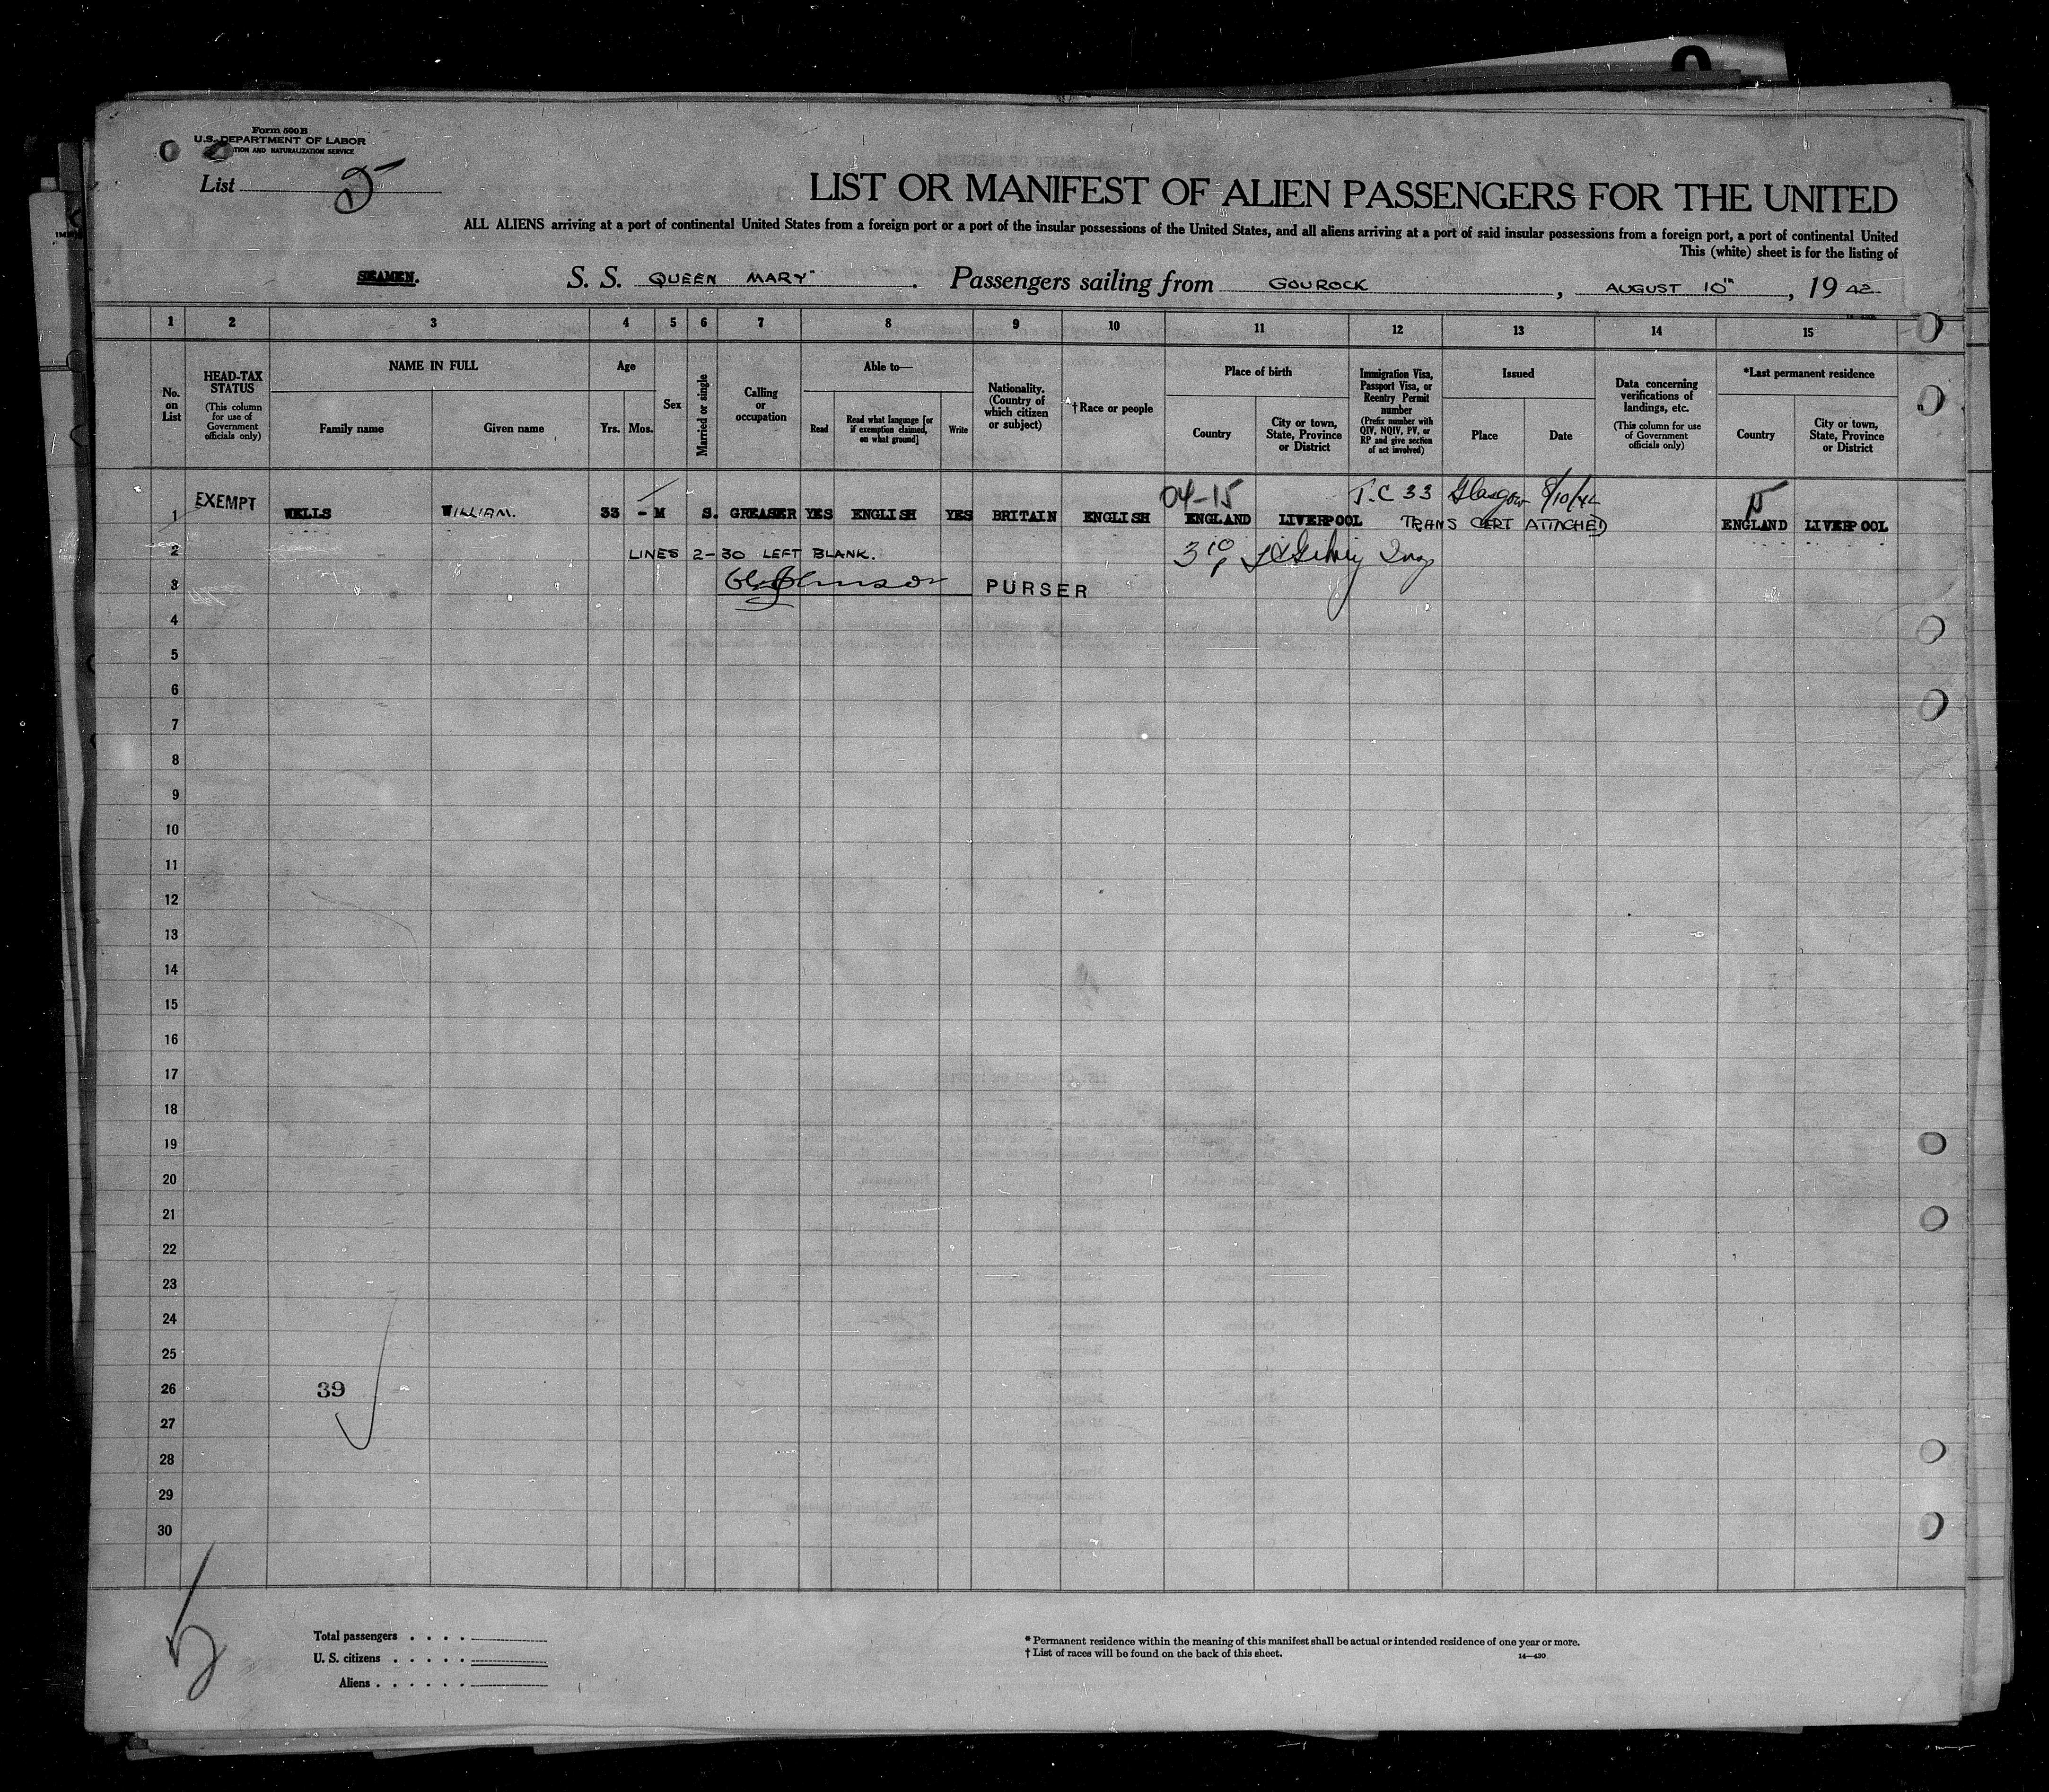 Form 500 B
U.S. DEPARTMENT OF LABOR
TION AND NATURALIZATION SERVICE
List
LIST OR MANIFEST OF ALIEN PASSENGERS FOR THE UNITED
ALL ALIENS arriving at a port of continental United States from a foreign port or a port of the insular possessions of the United States, and all aliens arriving at a port of said insular possessions from a foreign port, a port of continental United
This (white) sheet is for the listing of
SEAMEN. S. S. QUEEN MARY" . Passengers sailing from GOUROCK , AUGUST 10TH , 19 42
1 2 3 4 5 6 7 8 9 10 11 12 13 14 15
No. on List
HEAD-TAX STATUS (This column for use of Government officials only)
NAME IN FULL
Family name Given name
Age
Yrs. Mos.
Sex
Married or single
Calling or occupation
Able to—
Read Read what language [or if exemption claimed, on what ground] Write
Nationality. (Country of which citizen or subject)
†Race or people
Place of birth
Country City or town, State, Province or District
Immigration Visa, Passport Visa, or Reentry Permit number (Prefix number with QIV, NQIV, PV, or RP and give section of act involved)
Issued
Place Date
Data concerning verifications of landings, etc. (This column for use of Government officials only)
*Last permanent residence
Country City or town, State, Province or District
04-15 T.C 33 Glasgow 8/10/42
1 EXEMPT WELLS WILLIAM. 33 - M S. GREASER YES ENGLISH YES BRITAIN ENGLISH ENGLAND LIVERPOOL TRANS CERT ATTACHED ENGLAND LIVERPOOL
2 LINES 2-30 LEFT BLANK.
3 PURSER
4
5
6
7
8
9
10
11
12
13
14
15
16
17
18
19
20
21
22
23
24
25
26 39
27
28
29
30
Total passengers . . . .
U. S. citizens . . . . .
Aliens . . . . . .
* Permanent residence within the meaning of this manifest shall be actual or intended residence of one year or more.
† List of races will be found on the back of this sheet. 14—430